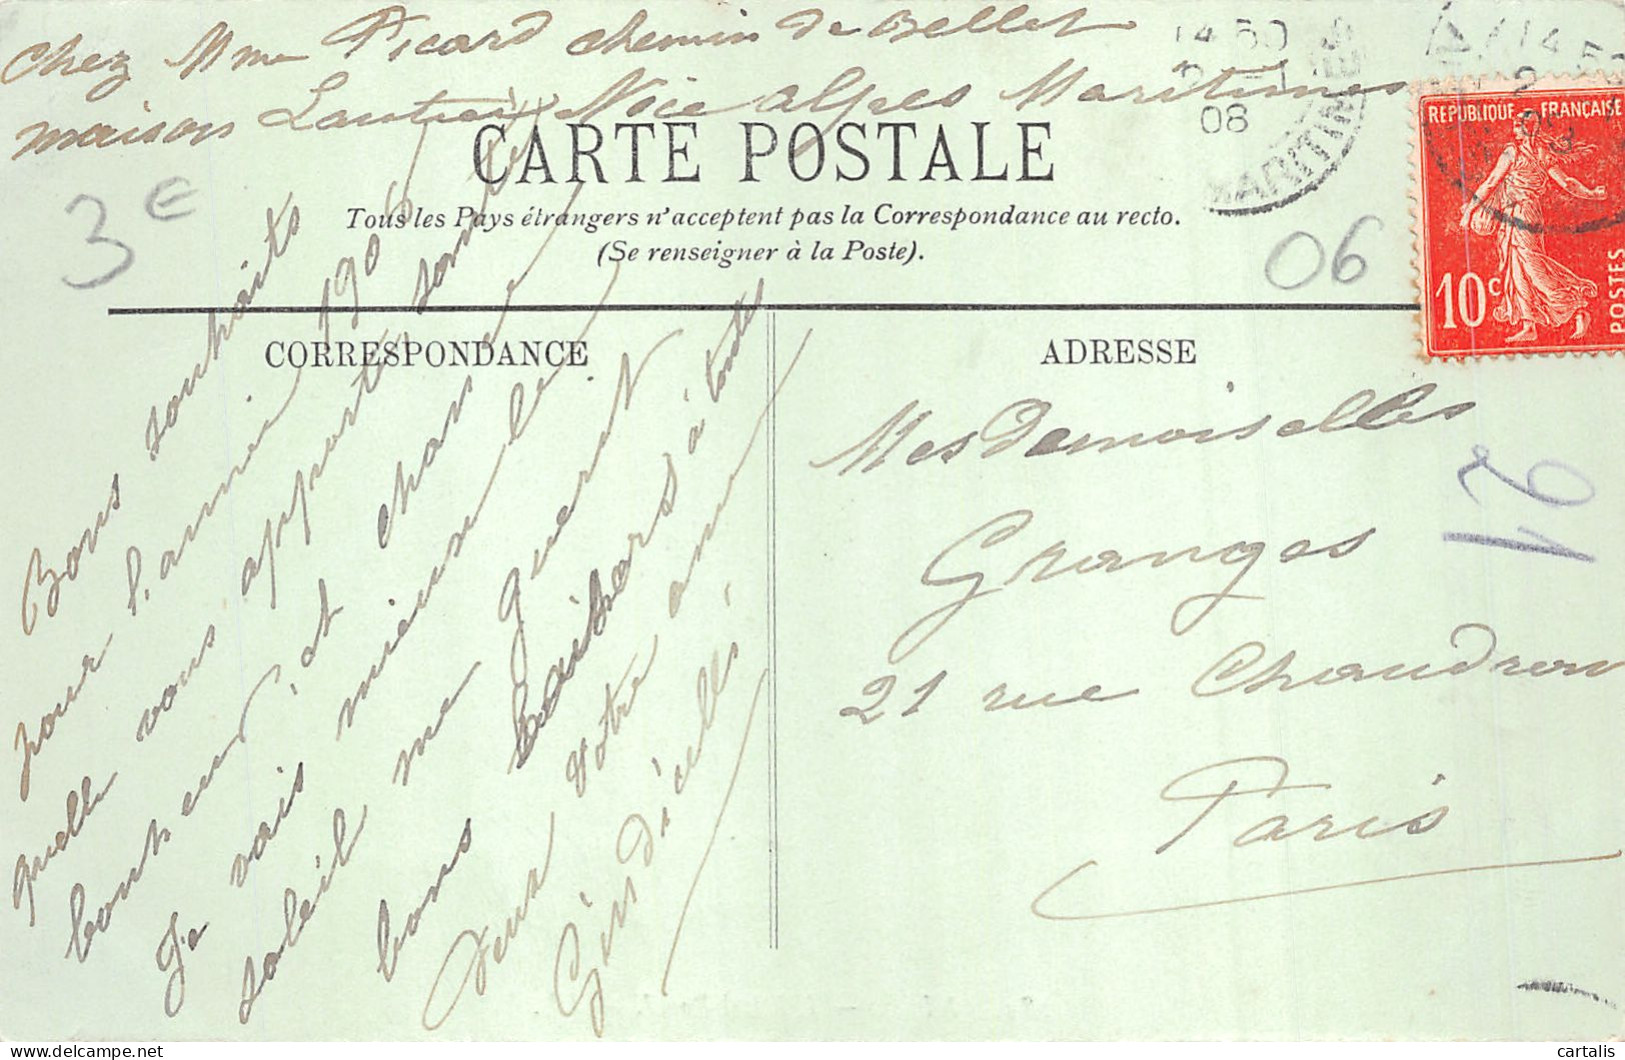 chez Mme Picard chemin de Bellet
maison Nice Alpes Maritimes
14 50
08
MARITIMES
REPUBLIQUE FRANÇAISE
10c
POSTES
CARTE POSTALE
Tous les Pays étrangers n'acceptent pas la Correspondance au recto.
(Se renseigner à la Poste).
3€
06
CORRESPONDANCE
ADRESSE
Bons souhaits
pour l'année 190
quelle vous apporte santé
bonheur, et chance
Je vais mieux le
soleil me guérit
bons baisers à toutes
deux votre amie
Mesdemoiselles
Granges
21 rue Chaudron
Paris
21
cartalis